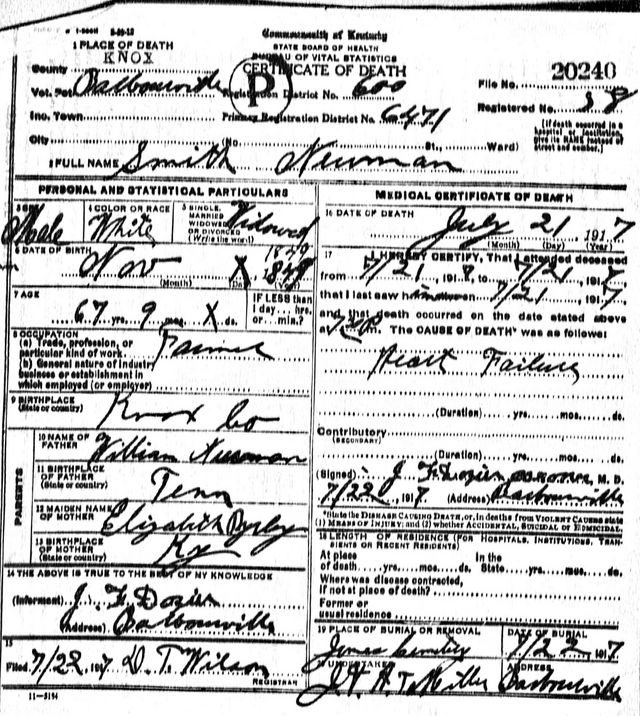 Commonwealth of Kentucky
STATE BOARD OF HEALTH
BUREAU OF VITAL STATISTICS
CERTIFICATE OF DEATH
1 PLACE OF DEATH
KNOX
County
Vot. Pct. Barbourville Registration District No. 600
File No. 20240
Inc. Town Primary Registration District No. 6471
Registered No. 38
City (No. St., Ward)
(If death occurred in a hospital or institution, give its NAME instead of street and number.)
2 FULL NAME Smith Newman
PERSONAL AND STATISTICAL PARTICULARS
3 SEX Male
4 COLOR OR RACE White
5 SINGLE, MARRIED, WIDOWED OR DIVORCED (Write the word) Widowed
6 DATE OF BIRTH
Nov X 1849
(Month) (Day)
7 AGE
67 yrs. 9 mos. X ds.
IF LESS than 1 day... hrs. or... min.?
8 OCCUPATION
(a) Trade, profession, or particular kind of work Farmer
(b) General nature of industry business or establishment in which employed (or employer)
9 BIRTHPLACE (State or country)
Knox Co
PARENTS
10 NAME OF FATHER William Newman
11 BIRTHPLACE OF FATHER (State or country) Tenn
12 MAIDEN NAME OF MOTHER Elizabeth
13 BIRTHPLACE OF MOTHER (State or country) Ky
14 THE ABOVE IS TRUE TO THE BEST OF MY KNOWLEDGE
(Informant) J. F. Dozier
(Address) Barbourville
15
Filed 7/22 1917 D. T. Wilson
REGISTRAR
11-5194
MEDICAL CERTIFICATE OF DEATH
16 DATE OF DEATH
July 21 1917
(Month) (Day) (Year)
17 I HEREBY CERTIFY, That I attended deceased
from 7/21 191 to 7/21 191
that I last saw h alive on 7/21 1917
and that death occurred on the date stated above
at m. The CAUSE OF DEATH* was as follows:
Heart Failure
(Duration) yrs. mos. ds.
Contributory (SECONDARY)
(Duration) yrs. mos. ds.
(Signed) J F Dozier M. D.
7/22 1917 (Address) Barbourville
*State the DISEASE CAUSING DEATH, or, in deaths from VIOLENT CAUSES state (1) MEANS OF INJURY; and (2) whether ACCIDENTAL, SUICIDAL or HOMICIDAL.
18 LENGTH OF RESIDENCE (FOR HOSPITALS, INSTITUTIONS, TRANSIENTS OR RECENT RESIDENTS)
At place of death yrs. mos. ds. In the State yrs. mos. ds.
Where was disease contracted, if not at place of death?
Former or usual residence
19 PLACE OF BURIAL OR REMOVAL
Jones Cemetery
DATE OF BURIAL
7/22 1917
20 UNDERTAKER
Miller
ADDRESS
Barbourville